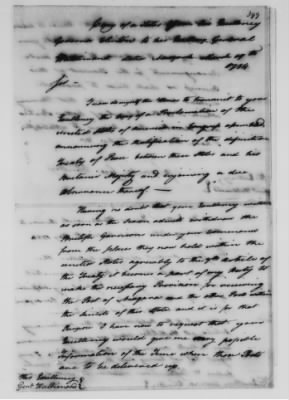 Copy of a Letter from his Excellency
Governor Clinton to his Excellency General
Haldimand dated New York March 19th
1784
Sir
I am charged the Honor to transmit to your
Excellency the Copy of a Proclamation of the
United States of America in Congress assembled
announcing the Ratification of the definitive
Treaty of Peace between these States and his
Britanic Majesty and enjoining a due
Observance thereof —
Having no doubt that your Excellency will
as soon as the Season admits withdraw the
British Garrisons under your Command
from the places they now hold within the
United States agreeably to the 7th Article of
the Treaty it becomes a part of my Duty to
make the necessary Provisions for receiving
the Post of Niagara and the other Posts within
the limits of this State and it is for that
Purpose I have now to request that your
Excellency would give me every possible
Information of the Time when these Posts
are to be delivered up
His Excellency
Genl Haldimand